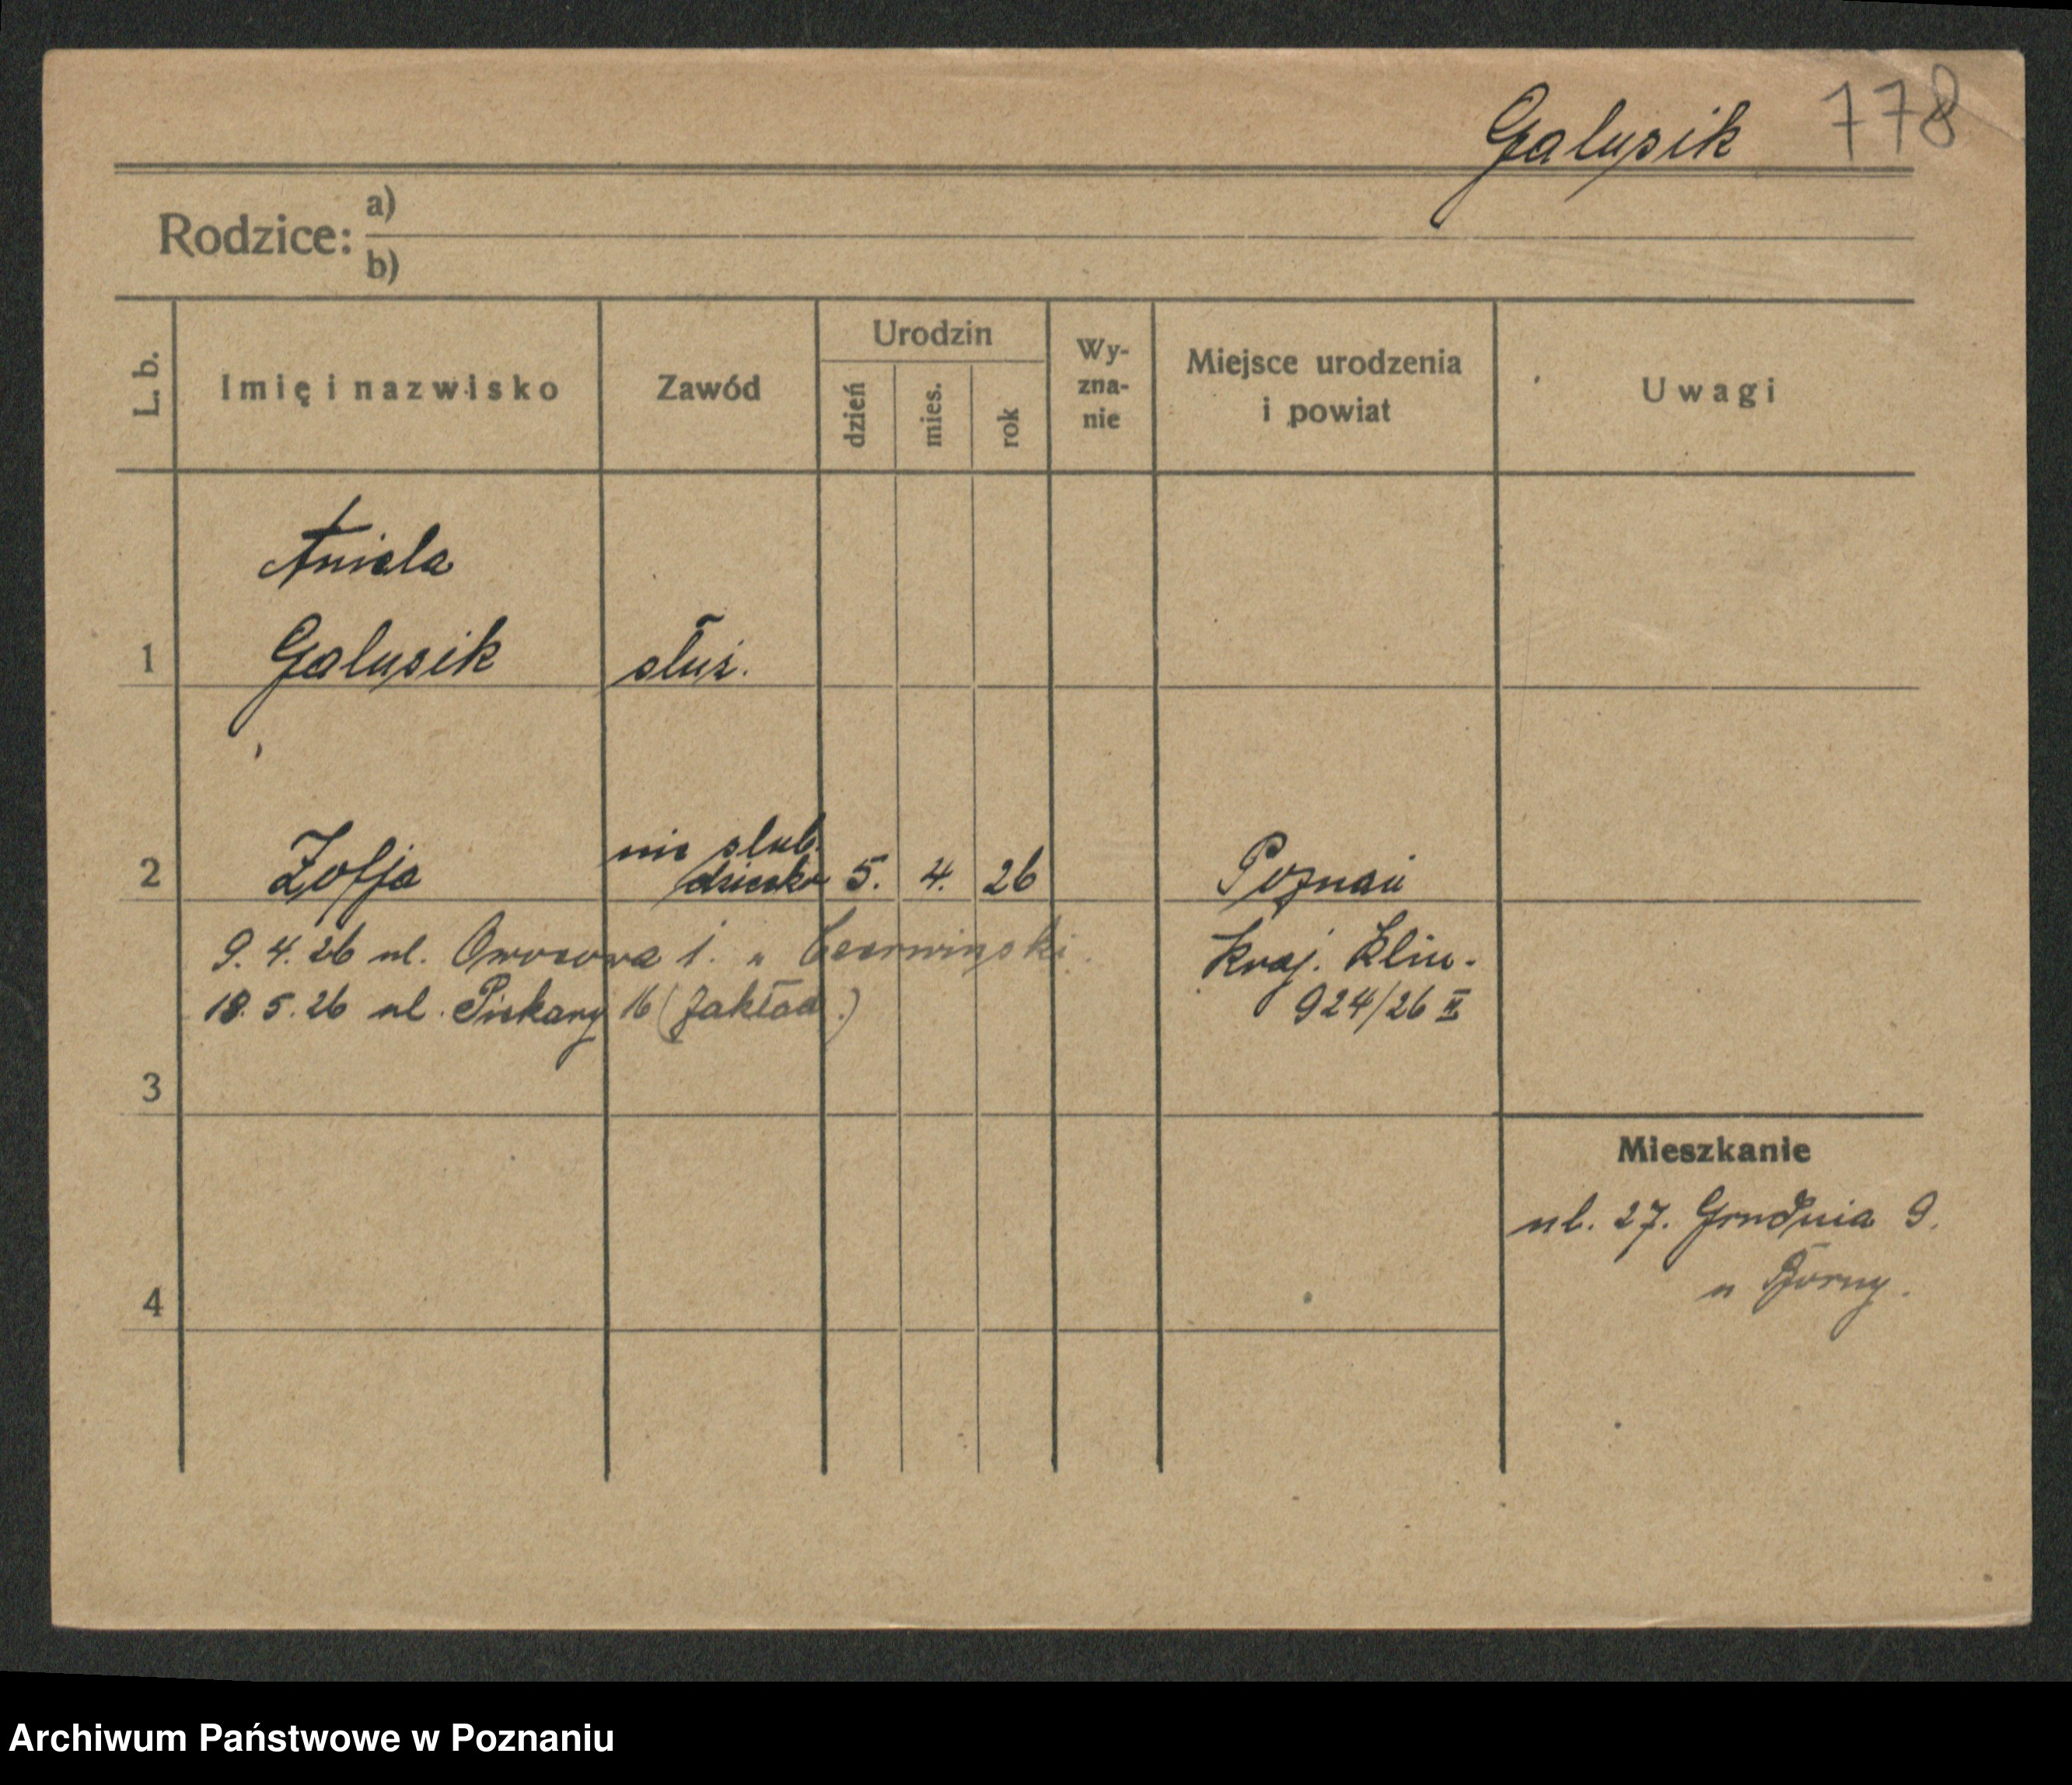 Galusik 778
Rodzice: a)
b)
L. b.
Imię i nazwisko
Zawód
Urodzin
dzień
mies.
rok
Wy-
zna-
nie
Miejsce urodzenia
i powiat
Uwagi
Aniela
1 Galusik służ.
2 Zofja nie ślub. dziecko 5. 4. 26 Poznań
9. 4. 26 ul. Owocowa 1. u Czerwinski. Kraj. Klin.
18. 5. 26 ul. Piekary 16 (Zakład.) 924/26 II
3
Mieszkanie
ul. 27. Grudnia 9.
u
4
Archiwum Państwowe w Poznaniu